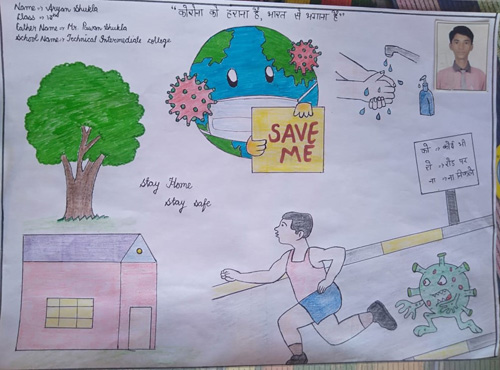 Name :- Aryan Shukla
Class :- 12nd
Father Name :- Mr. Pawan Shukla
School Name :- Technical Intermediate college
"कोरोना को हराना है, भारत से भगाना है"
SAVE
ME
Stay Home
Stay safe
को → कोई भी
रो → रोड पर
ना → ना निकले